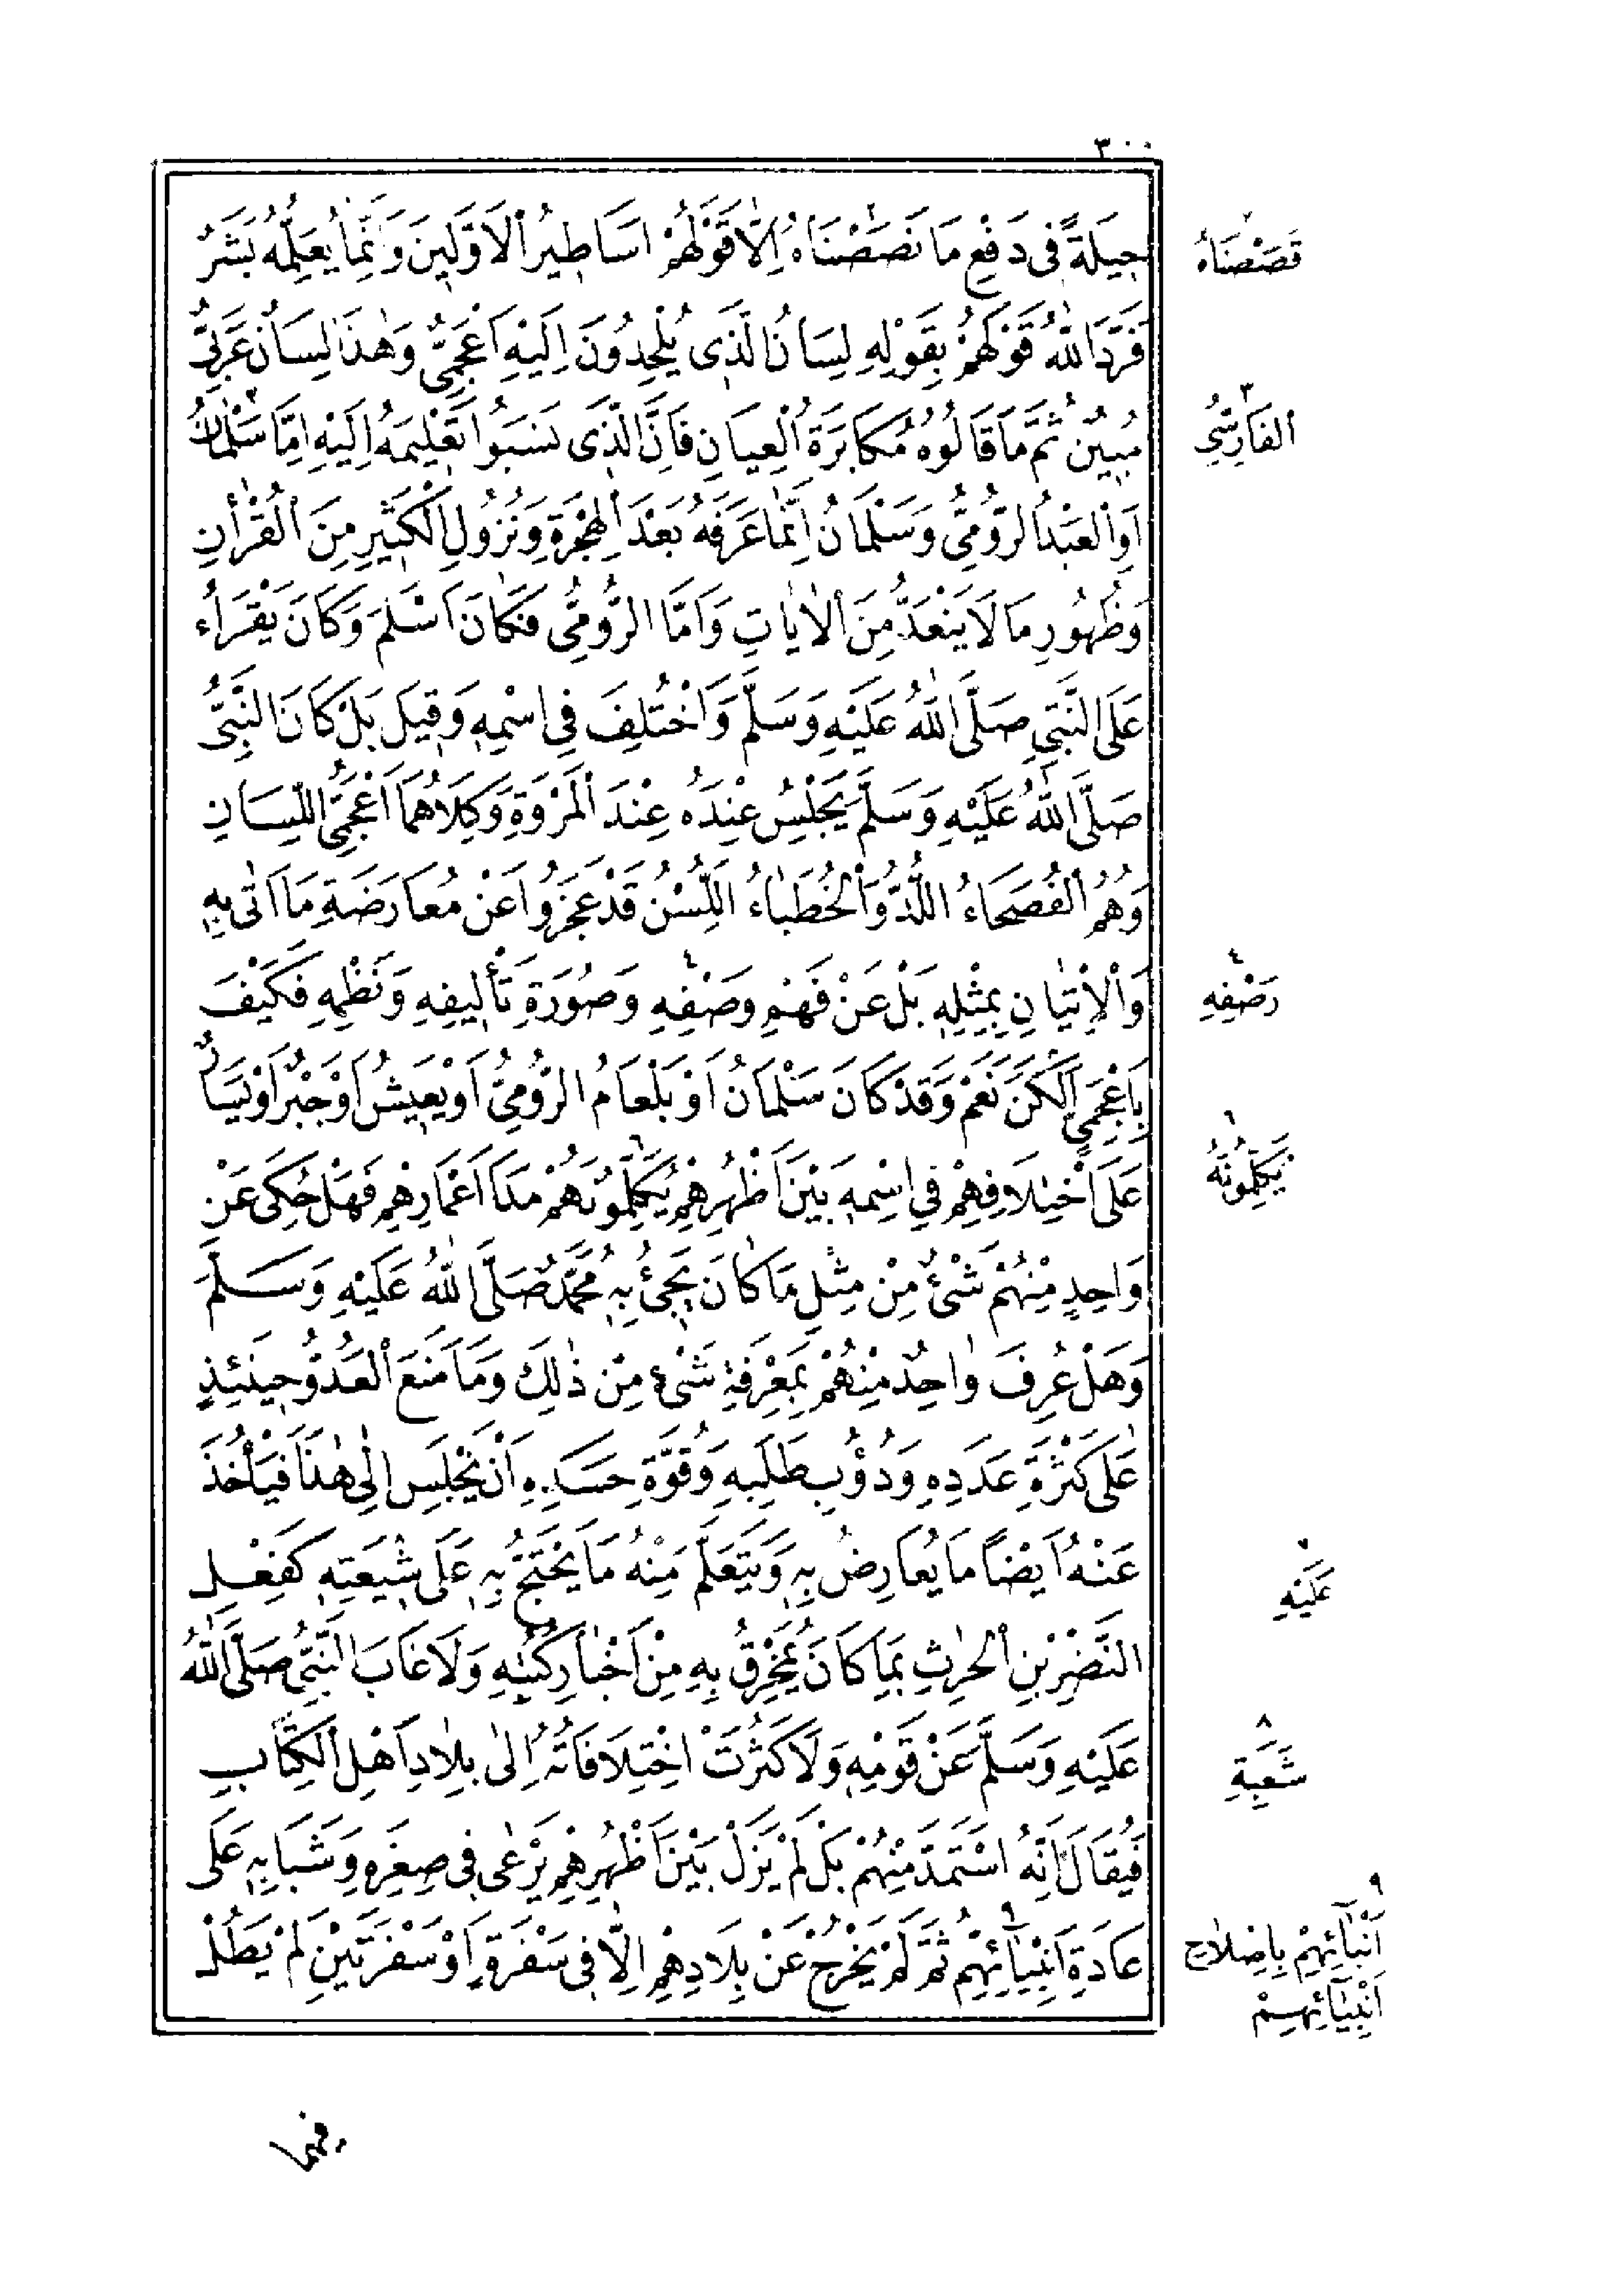 ٣٠٠
حِيلَةً فِى دَفْعِ مَا نَصَصْنَاهُ إِلَّا قَوْلَهُمْ اَسَاطِيرُ الْاَوَّلِينَ وَاِنَّمَا يُعَلِّمُهُ بَشَرٌ
فَرَدَّ اللّٰهُ قَوْلَهُمْ بِقَوْلِهِ لِسَانُ الَّذِى يُلْحِدُونَ اِلَيْهِ اَعْجَمِىٌّ وَهٰذَا لِسَانٌ عَرَبِىٌّ
مُبِينٌ ثُمَّ مَا قَالُوهُ مُكَابَرَةُ الْعِيَانِ فَاِنَّ الَّذِى نَسَبُوا تَعْلِيمَهُ اِلَيْهِ اِمَّا سَلْمَانُ ٣
اَوِ الْعَبْدُ الرُّومِىُّ وَسَلْمَانُ اِنَّمَا عَرَفَهُ بَعْدَ الْهِجْرَةِ وَنُزُولِ الْكَثِيرِ مِنَ الْقُرْاٰنِ
وَظُهُورِ مَا لَا يَنْعَدُّ مِنَ الْاٰيَاتِ وَاَمَّا الرُّومِىُّ فَكَانَ اَسْلَمَ وَكَانَ يَقْرَأُ
عَلَى النَّبِىِّ صَلَّى اللّٰهُ عَلَيْهِ وَسَلَّمَ وَاخْتُلِفَ فِى اسْمِهِ وَقِيلَ بَلْ كَانَ النَّبِىُّ
صَلَّى اللّٰهُ عَلَيْهِ وَسَلَّمَ يَجْلِسُ عِنْدَهُ عِنْدَ الْمَرْوَةِ وَكِلَاهُمَا اَعْجَمِىُّ اللِّسَانِ
وَهُمُ الْفُصَحَاءُ اللُّدُّ وَالْخُطَبَاءُ اللُّسْنُ قَدْ عَجَزُوا عَنْ مُعَارَضَةِ مَا اَتٰى بِهِ
وَالْاِتْيَانِ بِمِثْلِهِ بَلْ عَنْ فَهْمِ وَصْفِهِ ٤ وَصُورَةِ تَأْلِيفِهِ وَنَظْمِهِ فَكَيْفَ
بِاَعْجَمِىٍّ اَلْكَنَ نَعَمْ وَقَدْ كَانَ سَلْمَانُ اَوْ بَلْعَامُ الرُّومِىُّ اَوْ يَعِيشُ اَوْ جَبْرٌ اَوْ يَسَارٌ
عَلَى اخْتِلَافِهِمْ فِى اسْمِهِ بَيْنَ اَظْهُرِهِمْ يُكَلِّمُونَهُمْ ٦ مَدَا اَعْمَارِهِمْ فَهَلْ حُكِىَ عَنْ
وَاحِدٍ مِنْهُمْ شَىْءٌ مِنْ مِثْلِ مَا كَانَ يَجِىءُ بِهِ مُحَمَّدٌ صَلَّى اللّٰهُ عَلَيْهِ وَسَلَّمَ
وَهَلْ عُرِفَ وَاحِدٌ مِنْهُمْ بِمَعْرِفَةِ شَىْءٍ مِنْ ذٰلِكَ وَمَا مَنَعَ الْعَدُوَّ حِينَئِذٍ
عَلٰى كَثْرَةِ عَدَدِهِ وَدُؤُبِ طَلَبِهِ وَقُوَّةِ حَسَدِهِ اَنْ يَجْلِسَ اِلٰى هٰذَا فَيَأْخُذَ
عَنْهُ اَيْضًا مَا يُعَارِضُ بِهِ وَيَتَعَلَّمَ مِنْهُ مَا يَحْتَجُّ بِهِ عَلَى شِيعَتِهِ كَفِعْلِ
النَّضْرِ بْنِ الْحٰرِثِ بِمَا كَانَ يُمَخْرِقُ بِهِ مِنْ اَخْبَارِ كُتُبِهِ وَلَا غَابَ النَّبِىُّ صَلَّى اللّٰهُ
عَلَيْهِ وَسَلَّمَ عَنْ قَوْمِهِ وَلَا كَثُرَتْ اخْتِلَافَاتُهُ اِلٰى بِلَادِ اَهْلِ الْكِتَابِ
فَيُقَالَ اِنَّهُ اسْتَمَدَّ مِنْهُمْ بَلْ لَمْ يَزَلْ بَيْنَ اَظْهُرِهِمْ يَرْعٰى فِى صِغَرِهِ وَشَبَابِهِ عَلَى
عَادَةِ اَنْبِيَائِهِمْ ٩ ثُمَّ لَمْ يَخْرُجْ عَنْ بِلَادِهِمْ اِلَّا فِى سَفْرَةٍ اَوْ سَفْرَتَيْنِ لَمْ يَطُلْ
٢
قَصَصْنَاهُ
٣
الفَارِسِىُّ
٤
رَصْفِهِ
٦
يُكَلِّمُونَهُ
عَلَيْهِ
٨
شَعْبَةِ
٩
اَبْنَائِهِمْ بِاِصْلَاحِ
اَنْبِيَائِهِمْ
فيهما